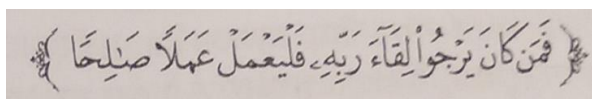 ﴿ فَمَن كَانَ يَرْجُوا۟ لِقَآءَ رَبِّهِۦ فَلْيَعْمَلْ عَمَلًا صَـٰلِحًا ﴾